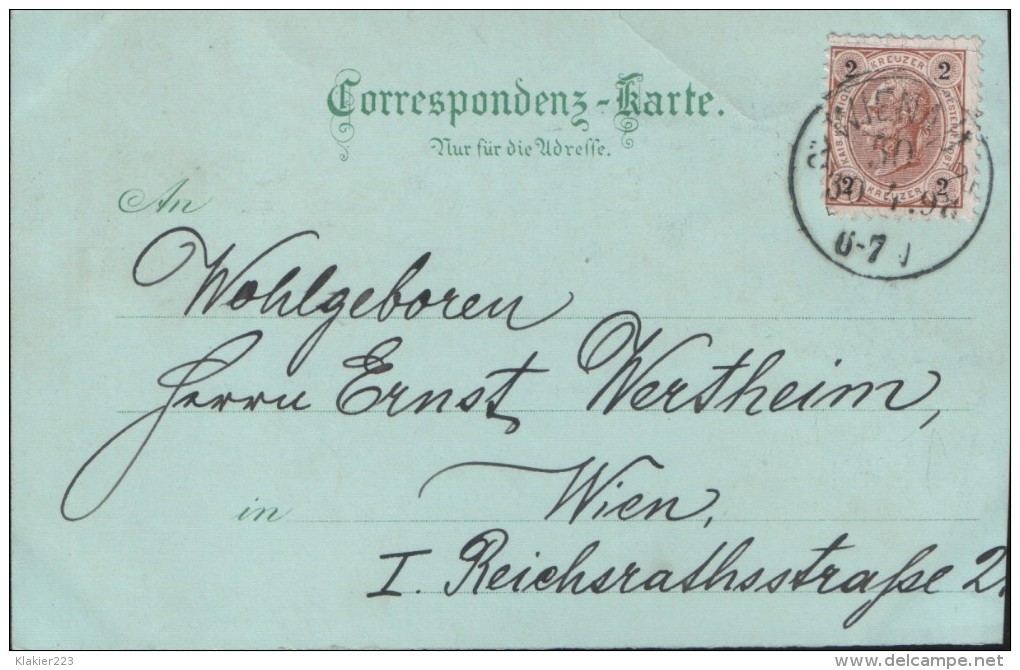 Correspondenz-Karte.
Nur für die Adresse.
2 KREUZER 2
2 KREUZER 2
WIEN
50
6-7
An
Wohlgeboren
Herrn Ernst Wertheim,
in Wien,
I. Reichsrathsstraße 2.
Klakier223
delcampe.net